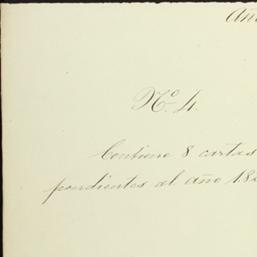 Añ
Nº 4.
Contiene 8 cartas
pondientes al año 18